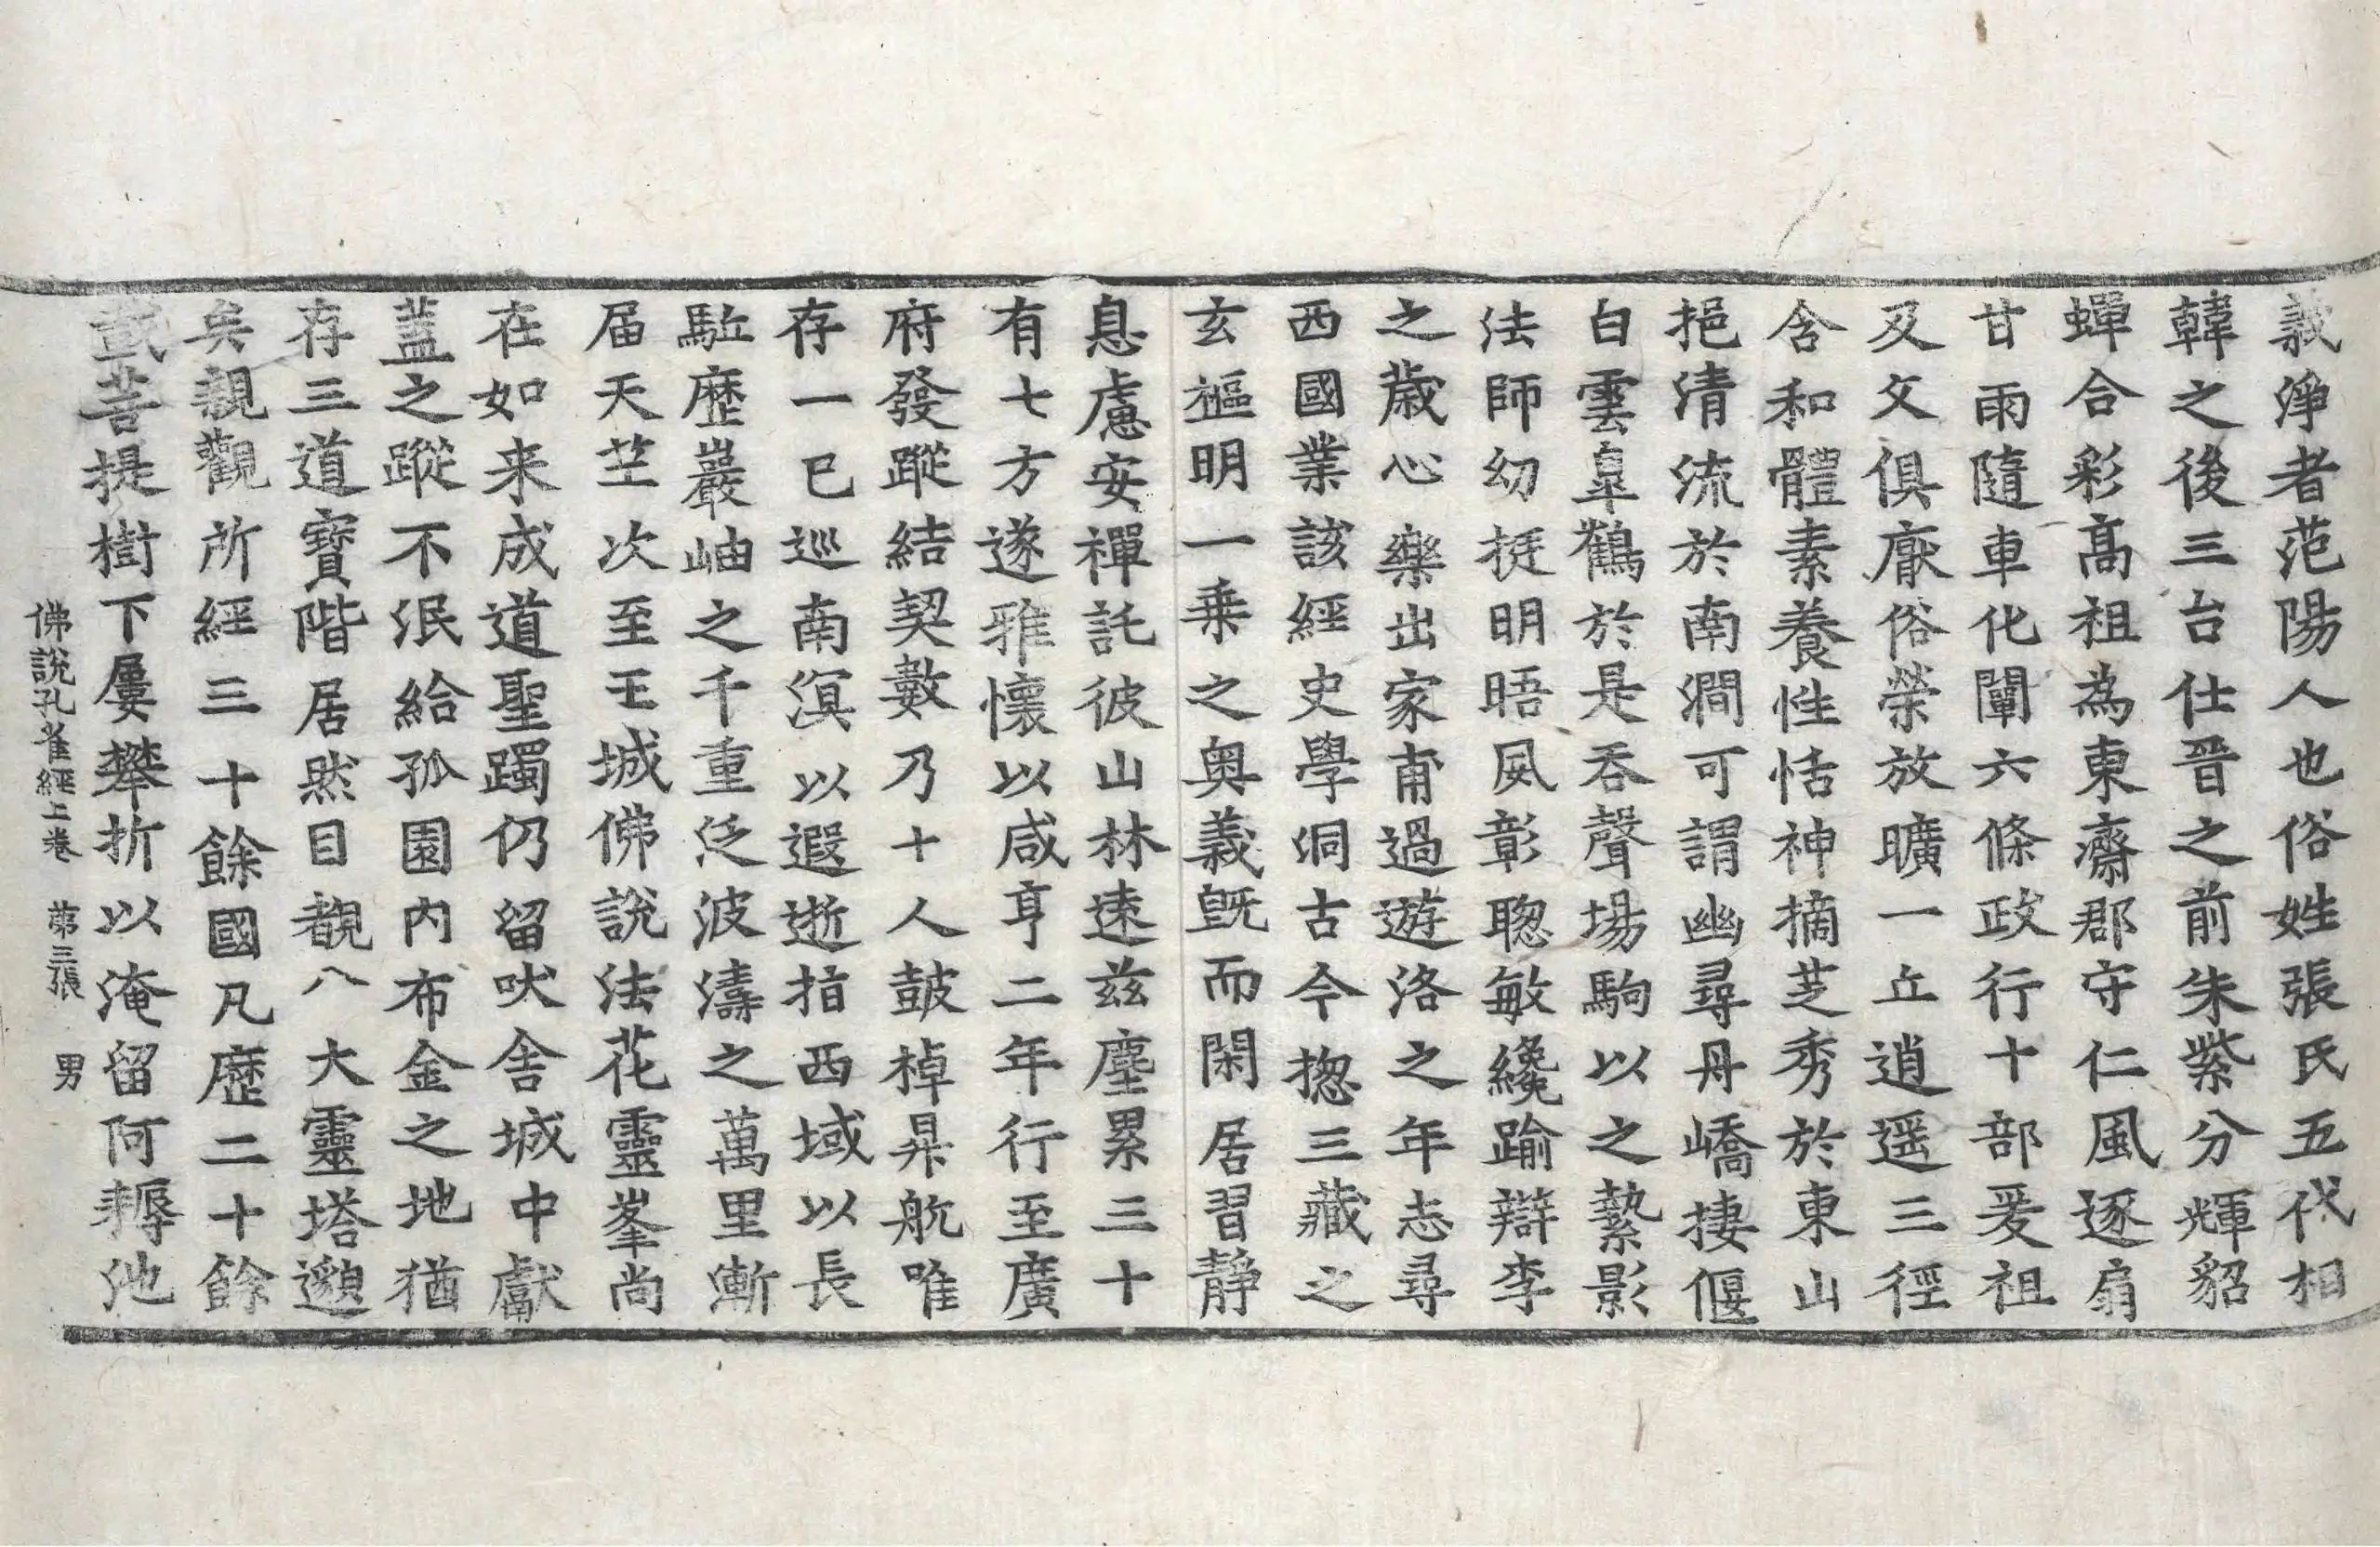 義淨者范陽人也俗姓張氏五代相
韓之後三台仕晉之前朱紫分輝貂
蟬合彩高祖為東齋郡守仁風逐扇
甘雨隨車化闡六條政行十部爰祖
及父俱猒俗榮放曠一丘逍遥三徑
含和體素養性恬神摘芝秀於東山
挹清流於南澗可謂幽尋丹嶠捿偃
白雲臯鶴於是吞聲場駒以之縶影
法師幼挺明晤夙彰聦敏纔踰辯李
之歲心樂出家甫過遊洛之年志尋
西國業該經史學洞古今揔三藏之
玄樞明一乗之奥義旣而閑居習靜
息慮安禪託彼山林遠兹塵累三十
有七方遂雅懷以咸亨二年行至廣
府發蹤結契數乃十人鼓棹昇航唯
存一已巡南溟以遐逝指西域以長
駈歴巖岫之千重泛波濤之萬里漸
届天竺次至王城佛說法花靈峯尚
在如来成道聖躅仍留吠舍城中獻
蓋之蹤不泯給孤園内布金之地猶
存三道寶階居然目覩八大靈塔邈
矣親觀所經三十餘國凡歴二十餘
載菩提樹下屢攀折以淹留阿耨池
佛說孔雀經上卷　第三張　男